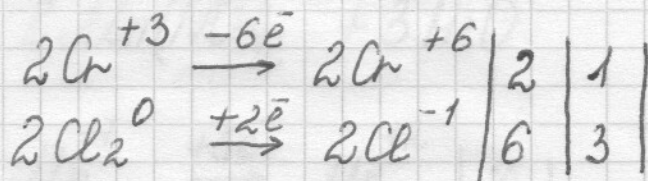 2Cr⁺³ —6ē→ 2Cr⁺⁶ | 2 | 1 |
2Cl₂⁰ +2ē→ 2Cl⁻¹ | 6 | 3 |